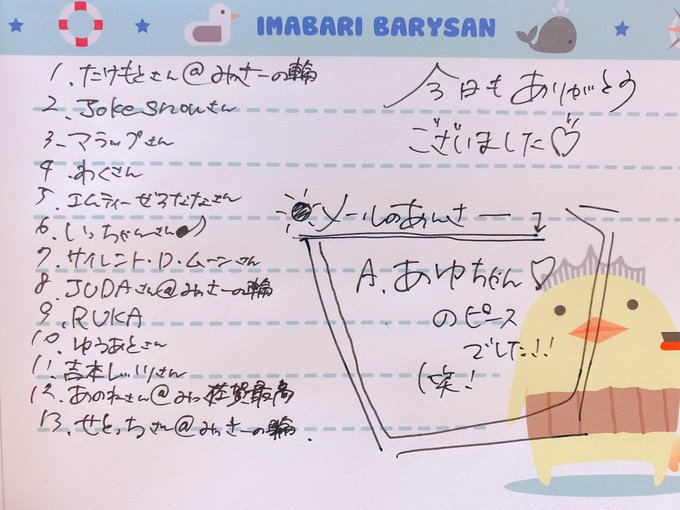 IMABARI BARYSAN
1. たけもとさん@みっきーの輪
2. Joke snowさん
3. マラップさん
4. わくさん
5. エムティーぜろななさん
6. しっちゃんさん
7. サイレント・D・ムーンさん
8. JUDAさん@みっきーの輪
9. RUKA
10. ゆうあとさん
11. 吉本しいいさん
12. あのねさん@みっ 佐賀最高
13. せとっちさん@みっきーの輪.
今日もありがとう
ございました♡
メールのあんさー
A. あゆちゃん♡
のピース
でした!!
(笑!